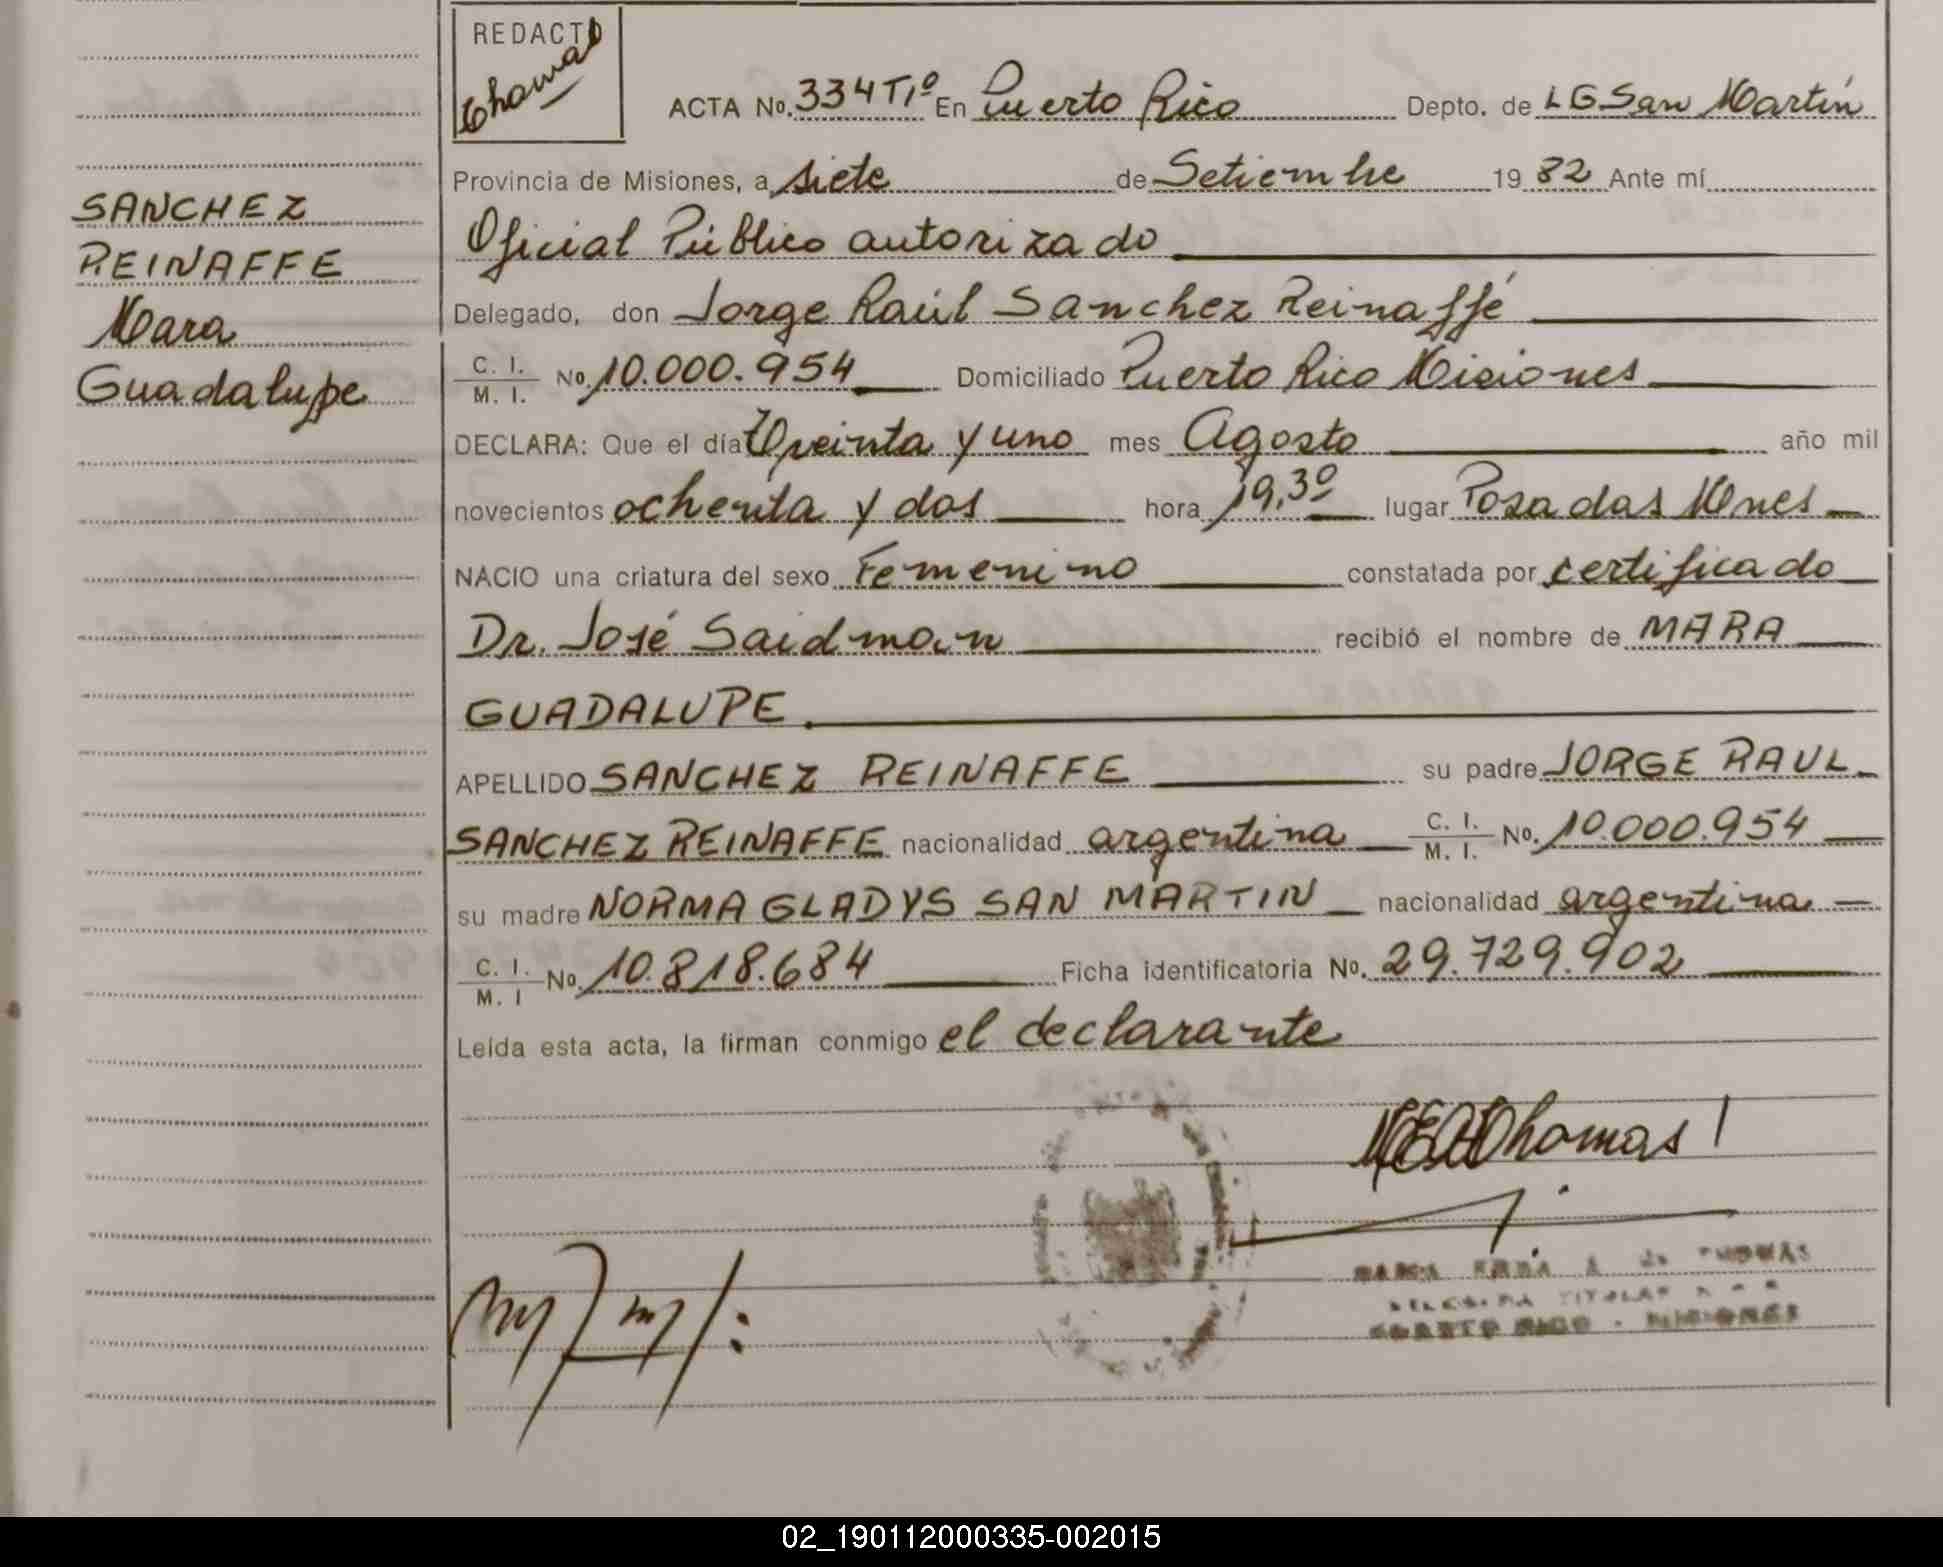 REDACTO
Thomas
ACTA No. 334 Tº1º En Puerto Rico Depto. de LG San Martín
Provincia de Misiones, a siete de Setiembre 1982 Ante mí
SANCHEZ
Oficial Público autorizado
REINAFFE
Delegado, don Jorge Raúl Sanchez Reinaffé
Mara
C. I.
M. I. No. 10.000.954 Domiciliado Puerto Rico Misiones
Guadalupe
DECLARA: Que el día Treinta y uno mes Agosto año mil
novecientos ochenta y dos hora 19,30 lugar Posadas Mnes
NACIO una criatura del sexo Femenino constatada por certificado
Dr. José Saidman recibió el nombre de MARA
GUADALUPE.
APELLIDO SANCHEZ REINAFFE su padre JORGE RAUL
SANCHEZ REINAFFE nacionalidad argentina C. I.
M. I. No. 10.000.954
su madre NORMA GLADYS SAN MARTIN nacionalidad argentina
C. I.
M. I No. 10.818.684 Ficha identificatoria No. 29.729.902
Leída esta acta, la firman conmigo el declarante
Thomas
PUERTO RICO - MISIONES
02_190112000335-002015